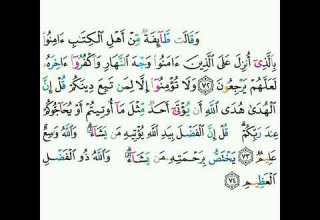 وَقَالَت طَّآئِفَةٌ مِّنْ أَهْلِ ٱلْكِتَٰبِ ءَامِنُوا۟
بِٱلَّذِىٓ أُنزِلَ عَلَى ٱلَّذِينَ ءَامَنُوا۟ وَجْهَ ٱلنَّهَارِ وَٱكْفُرُوٓا۟ ءَاخِرَهُۥ
لَعَلَّهُمْ يَرْجِعُونَ ٧٢ وَلَا تُؤْمِنُوٓا۟ إِلَّا لِمَن تَبِعَ دِينَكُمْ قُلْ إِنَّ
ٱلْهُدَىٰ هُدَى ٱللَّهِ أَن يُؤْتَىٰٓ أَحَدٌ مِّثْلَ مَآ أُوتِيتُمْ أَوْ يُحَآجُّوكُمْ
عِندَ رَبِّكُمْ ۗ قُلْ إِنَّ ٱلْفَضْلَ بِيَدِ ٱللَّهِ يُؤْتِيهِ مَن يَشَآءُ ۗ وَٱللَّهُ وَٰسِعٌ
عَلِيمٌ ٧٣ يَخْتَصُّ بِرَحْمَتِهِۦ مَن يَشَآءُ ۗ وَٱللَّهُ ذُو ٱلْفَضْلِ
ٱلْعَظِيمِ ٧٤